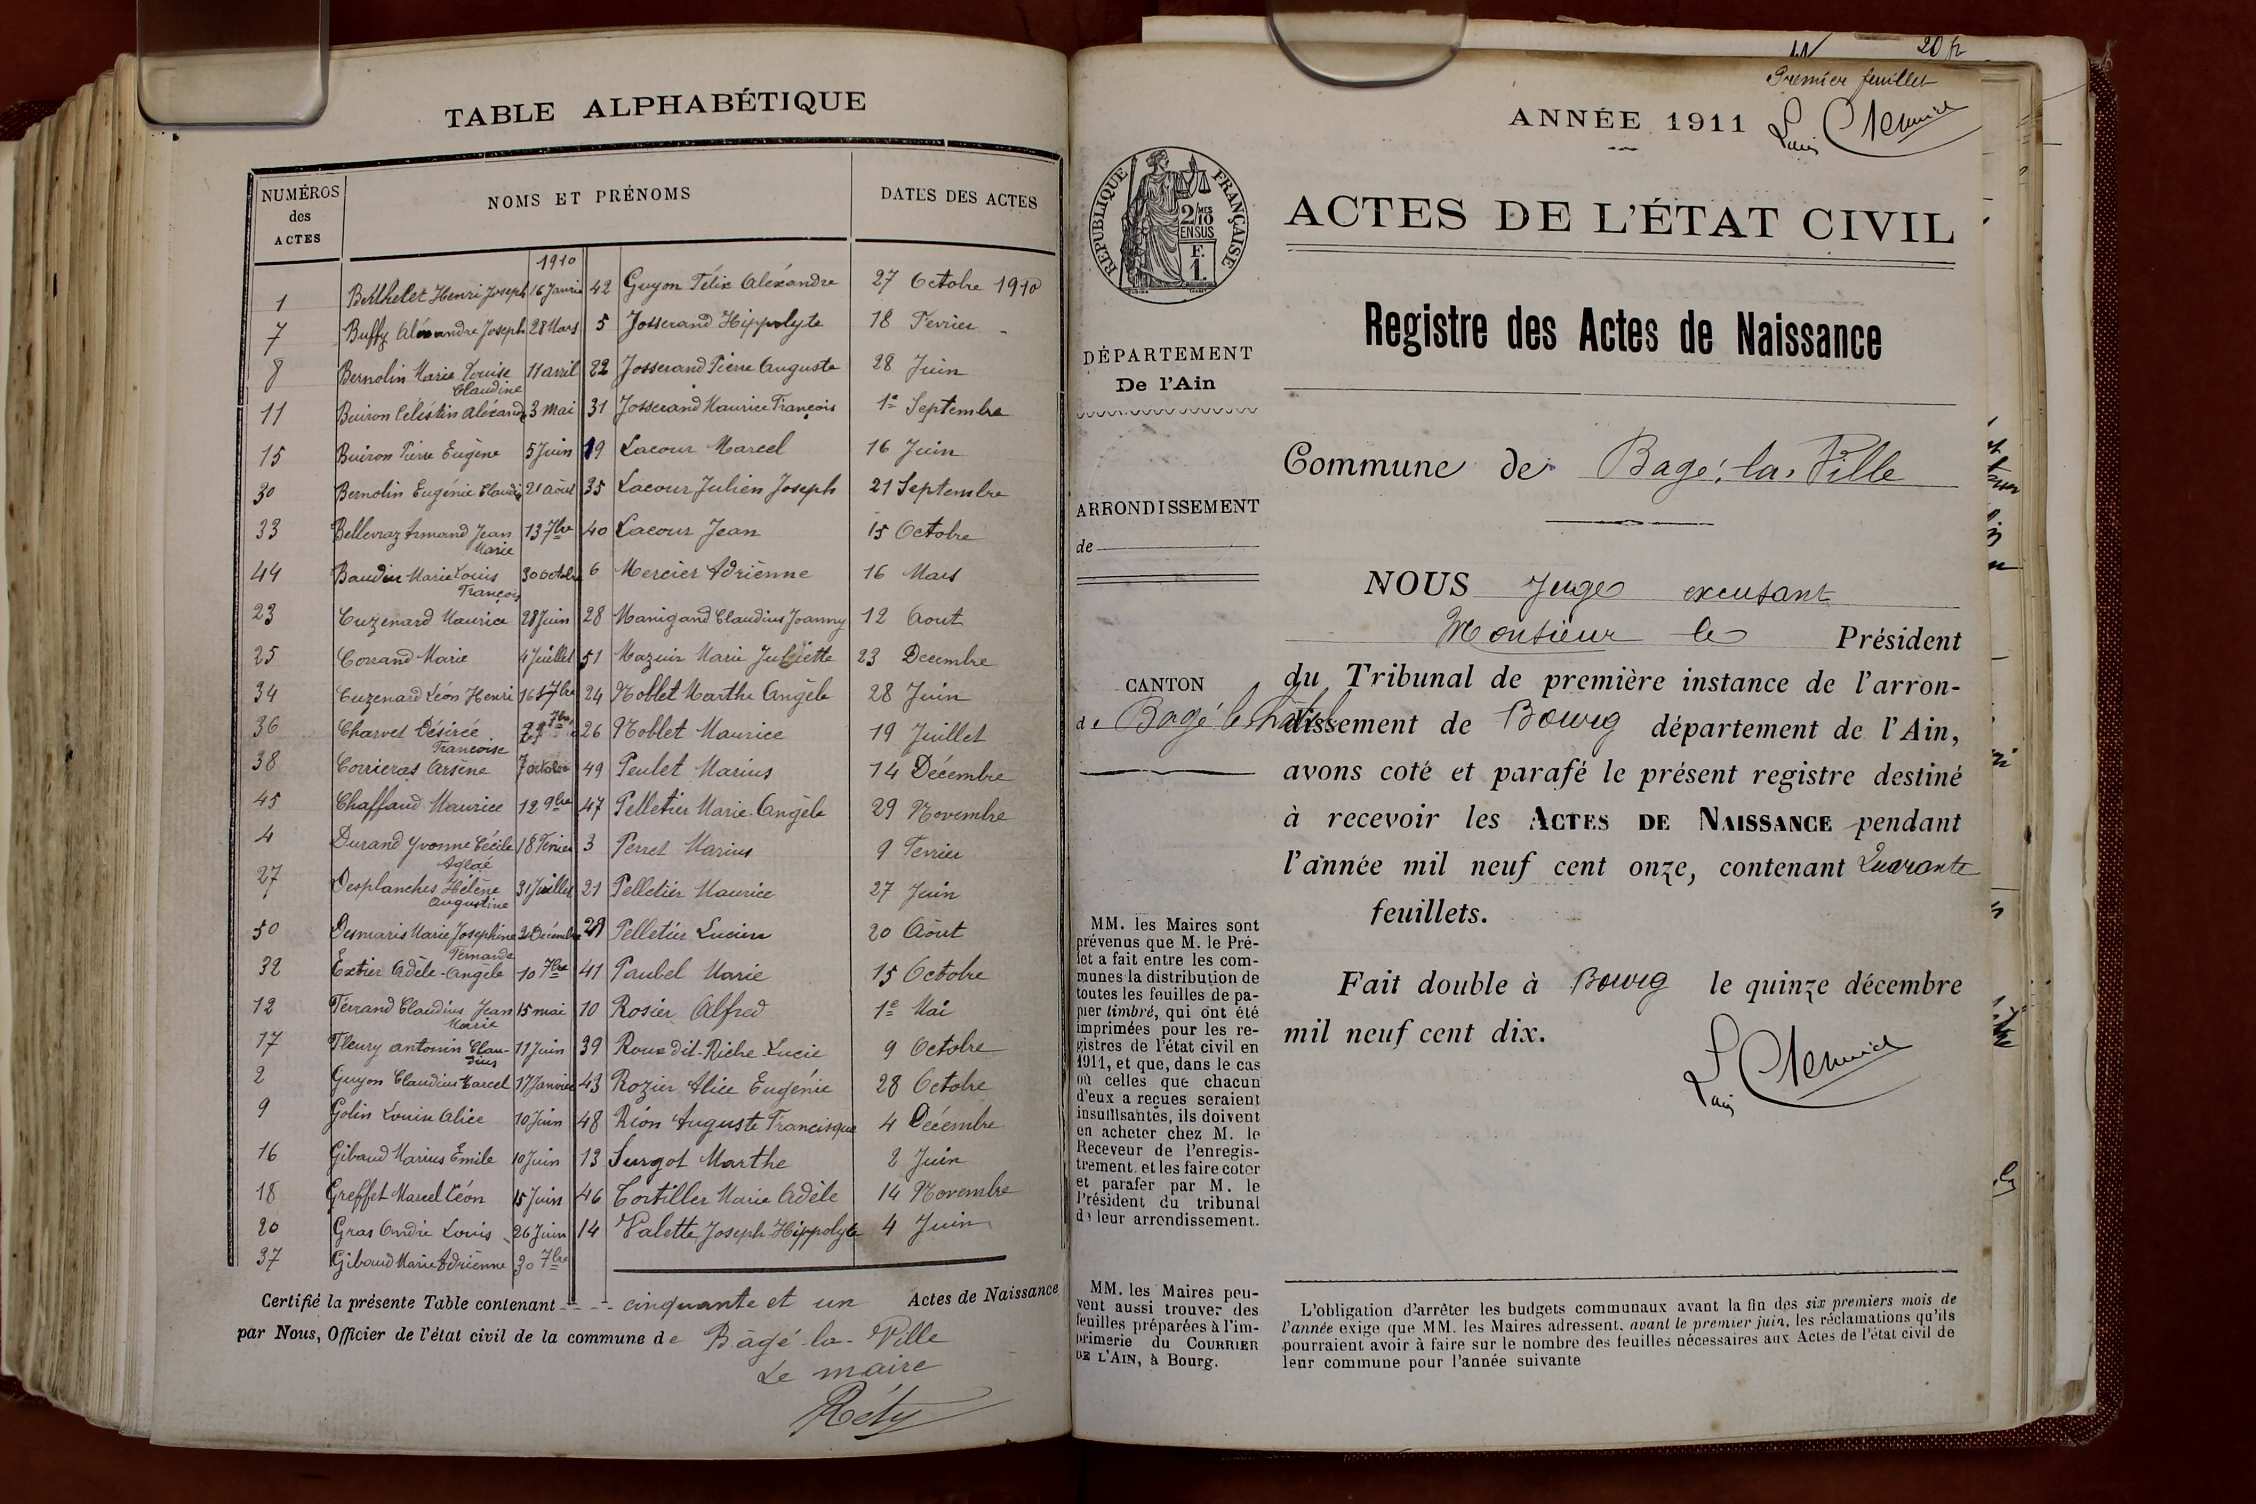 TABLE ALPHABÉTIQUE
NUMÉROS des ACTES
NOMS ET PRÉNOMS
DATES DES ACTES
1910
1 Berthelet Henri Joseph 16 Janvier
7 Buffy Alexandre Joseph 28 Mars
8 Bernolin Marie Louise Claudine 11 avril
11 Buiron Céléstin Aléxandre 3 mai
15 Buiron Pierre Eugène 5 Juin
30 Bernolin Eugénie Claudia 21 août
33 Bellevraz Armand Jean Marie 13 7bre
44 Baudin Marie Louis François 30 octobre
23 Cuzenard Maurice 28 Juin
25 Corrand Marie 4 Juillet
34 Cuzenard Léon Henri 16 7bre
36 Charvet Désirée Françoise 7bre
38 Corrieras Arsène 7 octobre
45 Chaffaud Maurice 12 9bre
4 Durand Yvonne Cécile Aglaé 18 Février
27 Desplanches Hélène Augustine 31 Juillet
50 Desmaris Marie Joséphine Fernande Décembre
32 Extier Adèle-Angèle 10 7bre
12 Ferrand Claudius Jean Marie 15 mai
17 Fleury antonin Claudius 11 Juin
2 Guyon Claudius Marcel 17 Janvier
9 Golin Louise Alice 10 Juin
16 Gibaud Marius Emile 10 Juin
18 Greffet Marcel Léon 15 Juin
20 Gras André Louis 26 Juin
37 Giboud Marie Adrienne 30 7bre
42 Guyon Félix Aléxandre 27 Octobre 1910
5 Josserand Hippolyte 18 Fevrier
22 Josserand Pierre Auguste 28 Juin
31 Josserand Maurice François 1er Septembre
19 Lacour Marcel 16 Juin
35 Lacour Julien Joseph 21 Septembre
40 Lacour Jean 15 Octobre
6 Mercier Adrienne 16 Mars
28 Manigand Claudius Joanny 12 Aout
51 Mazuir Marie Juliette 23 Decembre
24 Noblet Marthe Angèle 28 Juin
26 Noblet Maurice 19 Juillet
49 Peulet Marius 14 Décembre
47 Pelletier Marie Angèle 29 Novembre
3 Perret Marius 9 Fevrier
21 Pelletier Maurice 27 Juin
29 Pelletier Lucien 20 Août
41 Paubel Marie 15 Octobre
10 Rosier Alfred 1er Mai
39 Roux dit-Riche Lucie 9 Octobre
43 Rozier Alice Eugénie 28 Octobre
48 Rion Auguste Francisque 4 Décembre
13 Surgot Marthe 2 Juin
46 Tortiller Marie Adèle 14 Novembre
14 Valette Joseph Hippolyte 4 Juin
Certifié la présente Table contenant cinquante et un Actes de Naissance
par Nous, Officier de l'état civil de la commune de Bâgé-la-Ville
Le maire
Réty
20 fr
Premier feuillet
ANNÉE 1911
RÉPUBLIQUE FRANÇAISE
2/10 MES
EN SUS
F.
1.
ACTES DE L'ÉTAT CIVIL
Registre des Actes de Naissance
DÉPARTEMENT
De l'Ain
ARRONDISSEMENT
de
CANTON
de Bagé le Châtel
Commune de Bagé-la-Ville
NOUS Juge excusant
Monsieur le Président
du Tribunal de première instance de l'arron-
dissement de Bourg département de l'Ain,
avons coté et parafé le présent registre destiné
à recevoir les ACTES DE NAISSANCE pendant
l'année mil neuf cent onze, contenant Quarante
feuillets.
Fait double à Bourg le quinze décembre
mil neuf cent dix.
MM. les Maires sont
prévenus que M. le Pré-
fet a fait entre les com-
munes la distribution de
toutes les feuilles de pa-
pier timbré, qui ont été
imprimées pour les re-
gistres de l'état civil en
1911, et que, dans le cas
où celles que chacun
d'eux a reçues seraient
insuffisantes, ils doivent
en acheter chez M. le
Receveur de l'enregis-
trement et les faire coter
et parafer par M. le
Président du tribunal
de leur arrondissement.
MM. les Maires peu-
vent aussi trouver des
feuilles préparées à l'im-
primerie du COURRIER
DE L'AIN, à Bourg.
L'obligation d'arrêter les budgets communaux avant la fin des six premiers mois de
l'année exige que MM. les Maires adressent, avant le premier juin, les réclamations qu'ils
pourraient avoir à faire sur le nombre des feuilles nécessaires aux Actes de l'état civil de
leur commune pour l'année suivante